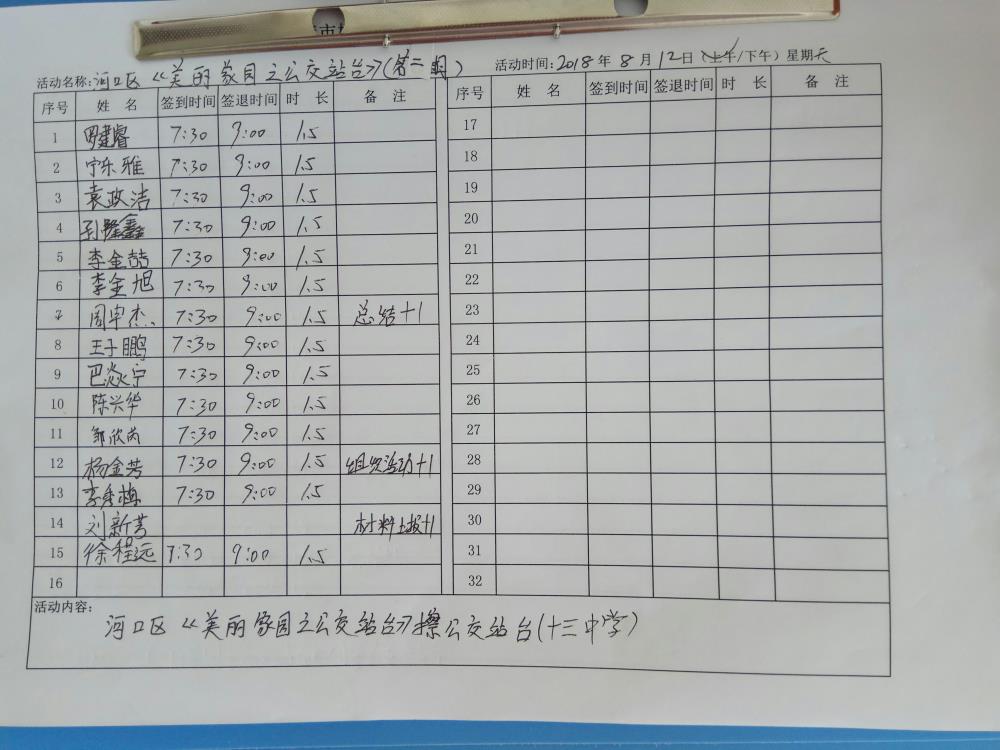 活动名称:河口区《美丽家园之公交站台》(第二期)
活动时间:2018年8月12日(上午/下午)星期天
序号 姓名 签到时间 签退时间 时长 备注 序号 姓名 签到时间 签退时间 时长 备注
1 罗建睿 7:30 9:00 1.5 17
2 宁乐雅 7:30 9:00 1.5 18
3 袁政洁 7:30 9:00 1.5 19
4 鑫 7:30 9:00 1.5 20
5 李金喆 7:30 9:00 1.5 21
6 李金旭 7:30 9:00 1.5 22
7 周宇杰 7:30 9:00 1.5 总结+1 23
8 王子鹏 7:30 9:00 1.5 24
9 巴焱宁 7:30 9:00 1.5 25
10 陈兴华 7:30 9:00 1.5 26
11 邹欣芮 7:30 9:00 1.5 27
12 杨金芳 7:30 9:00 1.5 组织活动+1 28
13 李秀梅 7:30 9:00 1.5 29
14 刘新芳 材料上报+1 30
15 徐程远 7:30 9:00 1.5 31
16 32
活动内容:
河口区《美丽家园之公交站台》擦公交站台(十三中学)